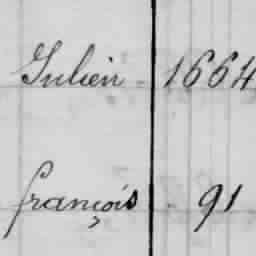 Julien 1664
françois 91